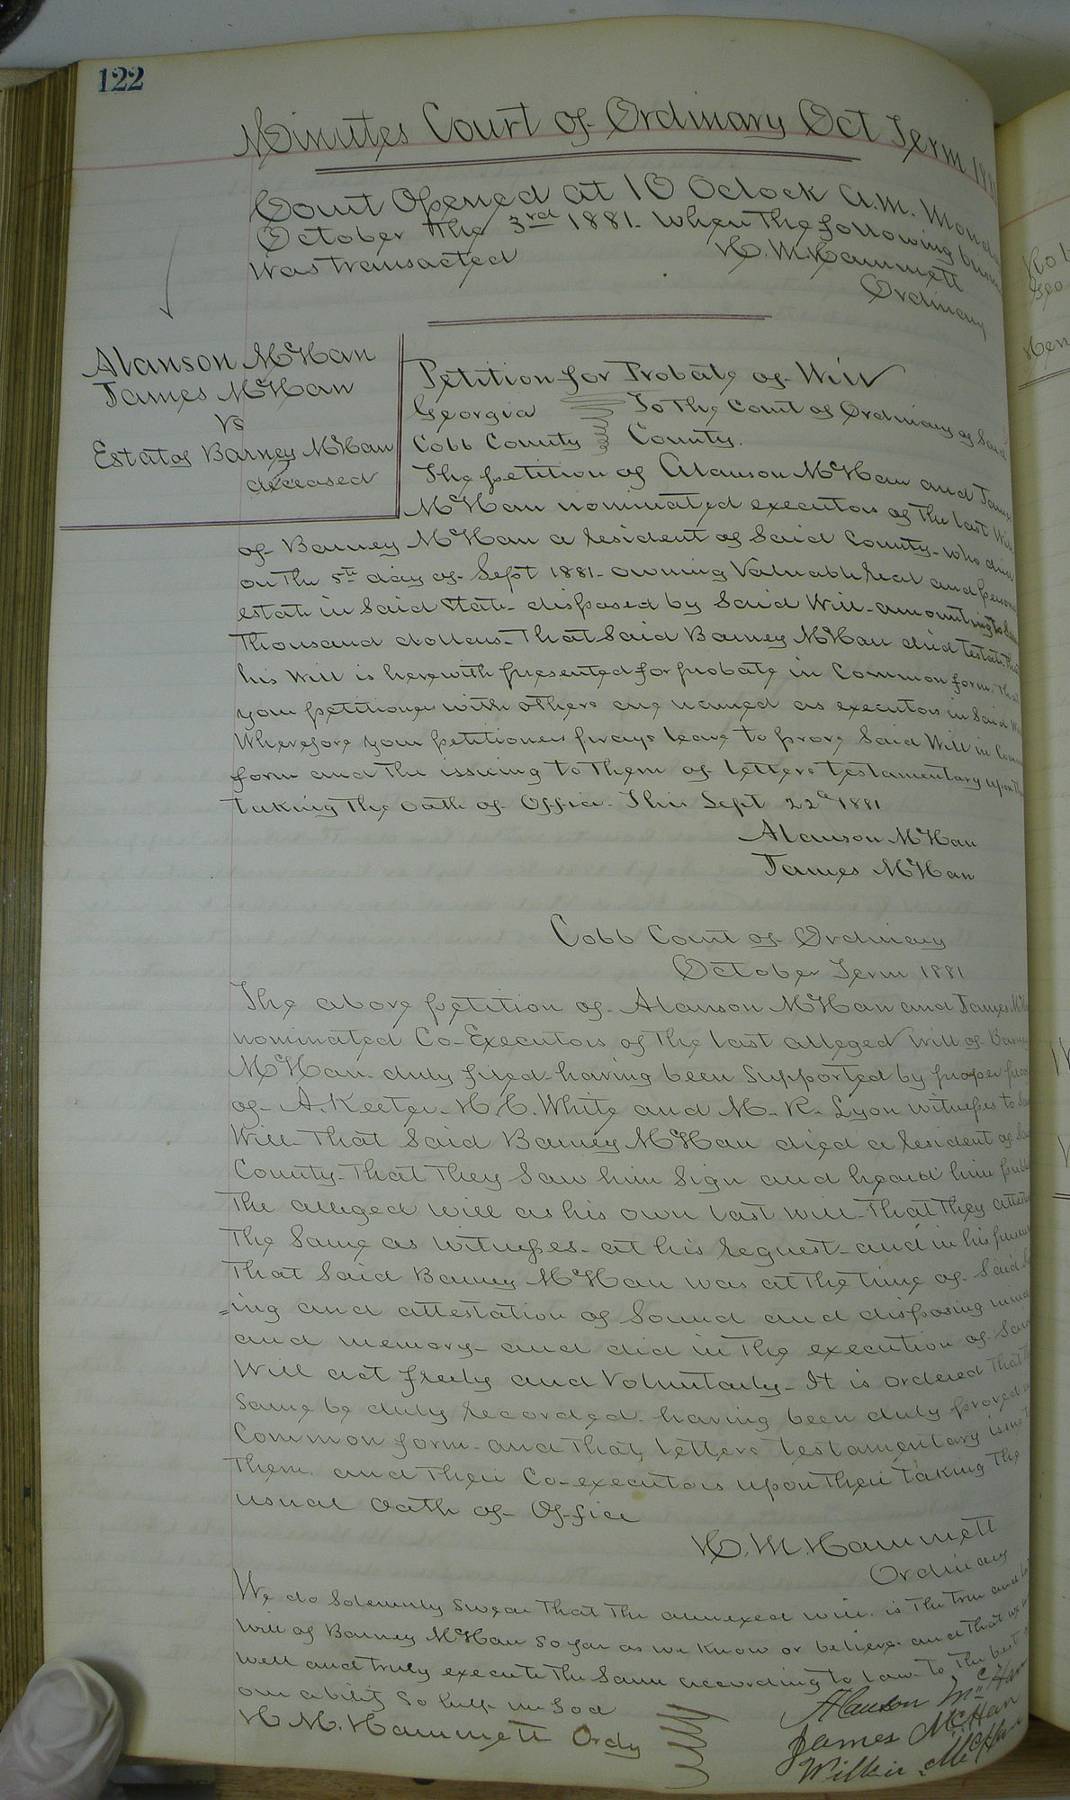 122
Minutes Court of Ordinary Oct Term
Court Opened at 10 Oclock a.m.
October the 3rd 1881. When the following
was transacted
H. M. Hammett
Ordinary
Alanson McHan
James McHan
vs
Estat of Barney McHan
deceased
Petition for Probate of Will
Georgia To the Court of Ordinary of Said
Cobb County County.
The petition of Alanson McHan and James
McHan nominated executors of the last Will
of Barney McHan a resident of Said County - who died
on the 5th day of Sept 1881 - owning Valuable real and
estate in Said State - disposed by Said Will - amounting to
thousand dollars - That Said Barney McHan died testate
his Will is herewith presented for probate in Common form. That
your petitioner with others are named as executors in Said
Wherefore your petitioners prays leave to prove Said Will in
form and the issuing to them of letters testamentary upon
taking the oath of office. This Sept 22d 1881
Alanson McHan
James McHan
Cobb Court of Ordinary
October Term 1881
The above petition of Alanson McHan and James
nominated Co-Executors of the last alleged Will of Barney
McHan - duly filed - having been Supported by proper
of A. Keeter - H. C. White and M. R. Lyon witnesses to
Will - That Said Barney McHan died a resident of
County - That they Saw him Sign and heard him
the alleged will as his own last will - That they
the Same as witnesses - at his request - and in his
That Said Barney McHan was at the time of Said
=ing and attestation of Sound and disposing
and memory - and did in the execution of
Will act freely and Voluntarily - It is ordered that
Same be duly recorded - having been duly proved
Common form - and that letters testamentary
them and their Co-executors upon their taking the
usual Oath of Office
H. M. Hammett
Ordinary
We do Solemnly Swear that the annexed will is the true and
will of Barney McHan So far as we know or believe and that we
well and truly execute the Same according to law to the best
our ability So help us God
H. M. Hammett Ordy
Alanson McHan
James McHan
Wilkie McHan